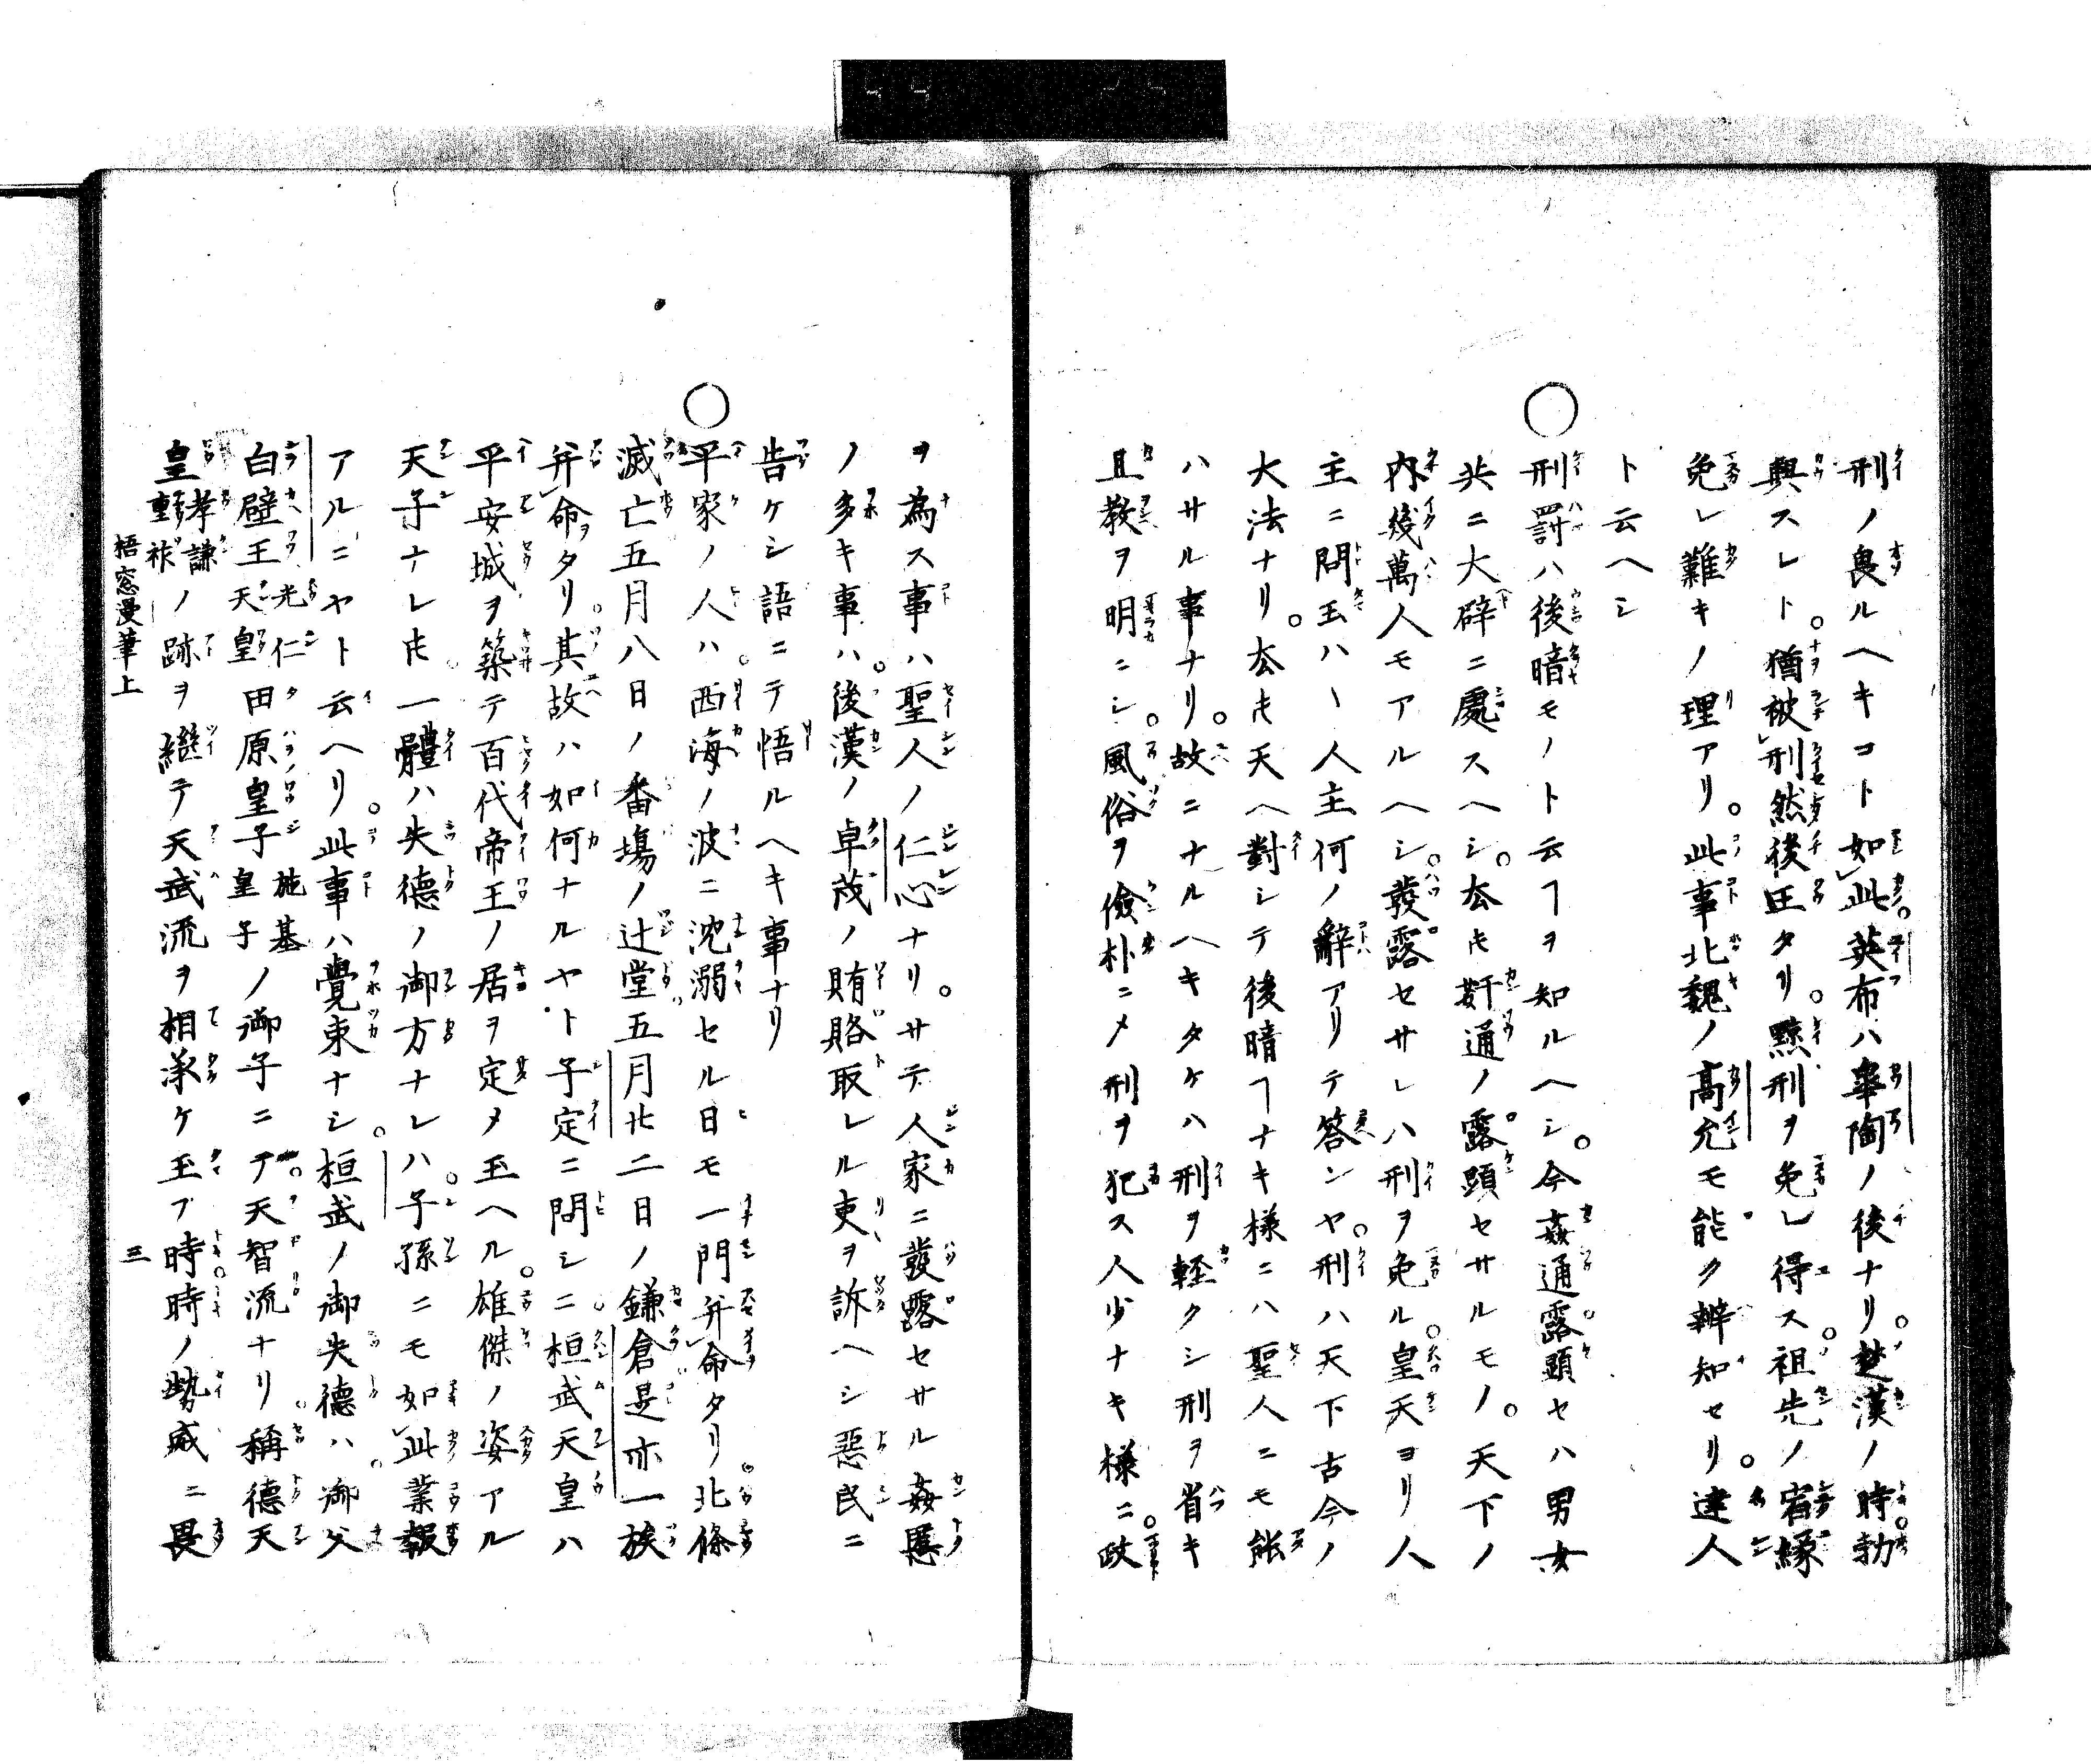 刑ノ畏ルヘキコト如此。英布ハ皐陶ノ後ナリ。楚漢ノ時勃
興スレト。猶被刑然後王タリ。黥刑ヲ免レ得ス。祖先ノ宿縁
免レ難キノ理アリ。此事北魏ノ高允モ能ク辨知セリ。達人
ト云ヘシ
○刑罰ハ後暗モノト云ヿヲ知ルヘシ。今姦通露顕セハ男女
共ニ大辟ニ處スヘシ。去𪜈姧通ノ露顕セサルモノ。天下ノ
内幾萬人モアルヘシ。發露セサレハ刑ヲ免ル。皇天ヨリ人
主ニ問玉ハヽ人主何ノ辭アリテ答ンヤ。刑ハ天下古今ノ
大法ナリ。去𪜈天ヘ對シテ後暗ヿナキ様ニハ聖人ニモ能
ハサル事ナリ。故ニナルヘキタケハ刑ヲ軽クシ刑ヲ省キ
且教ヲ明ニシ。風俗ヲ儉朴ニメ刑ヲ犯ス人少ナキ様ニ。政
ヲ為ス事ハ聖人ノ仁心ナリ。サテ人家ニ發露セサル姦慝
ノ多キ事ハ。後漢ノ卓茂ノ賄賂取レル吏ヲ訴ヘシ惡民ニ
告ケシ語ニテ悟ルヘキ事ナリ
○平家ノ人ハ。西海ノ波ニ沈溺セル日モ一門并命タリ。北條
滅亡五月八日ノ番塲ノ辻堂五月廿二日ノ鎌倉是亦一族
并命タリ。其故ハ如何ナルヤト子定ニ問シニ。桓武天皇ハ
平安城ヲ築テ百代帝王ノ居ヲ定メ玉ヘル。雄傑ノ姿アル
天子ナレ𪜈。一體ハ失德ノ御方ナレハ。子孫ニモ如此業報
アルニヤト云ヘリ。此事ハ覺束ナシ。桓武ノ御失德ハ。御父
白壁王光仁天皇田原皇子施基皇子ノ御子ニテ。天智流ナリ。稱德天
皇孝謙重祚ノ跡ヲ継テ天武流ヲ相承ケ玉フ時。時ノ勢威ニ畏
梧窓漫筆上
三